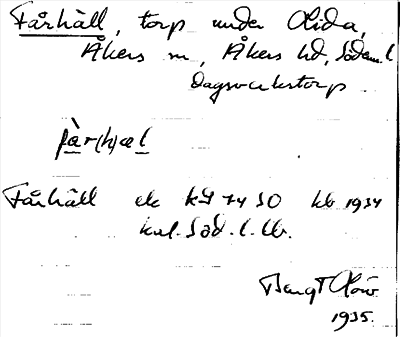 Fårhäll, torp under Lida,
Åkers sn, Åkers hd, Södem. l.
Dagsverkstorp
fàr(h)æl
Fårhäll ek kbl 74 SO hb 1934
kul. Söd. l. lb.
Bengt
1935.